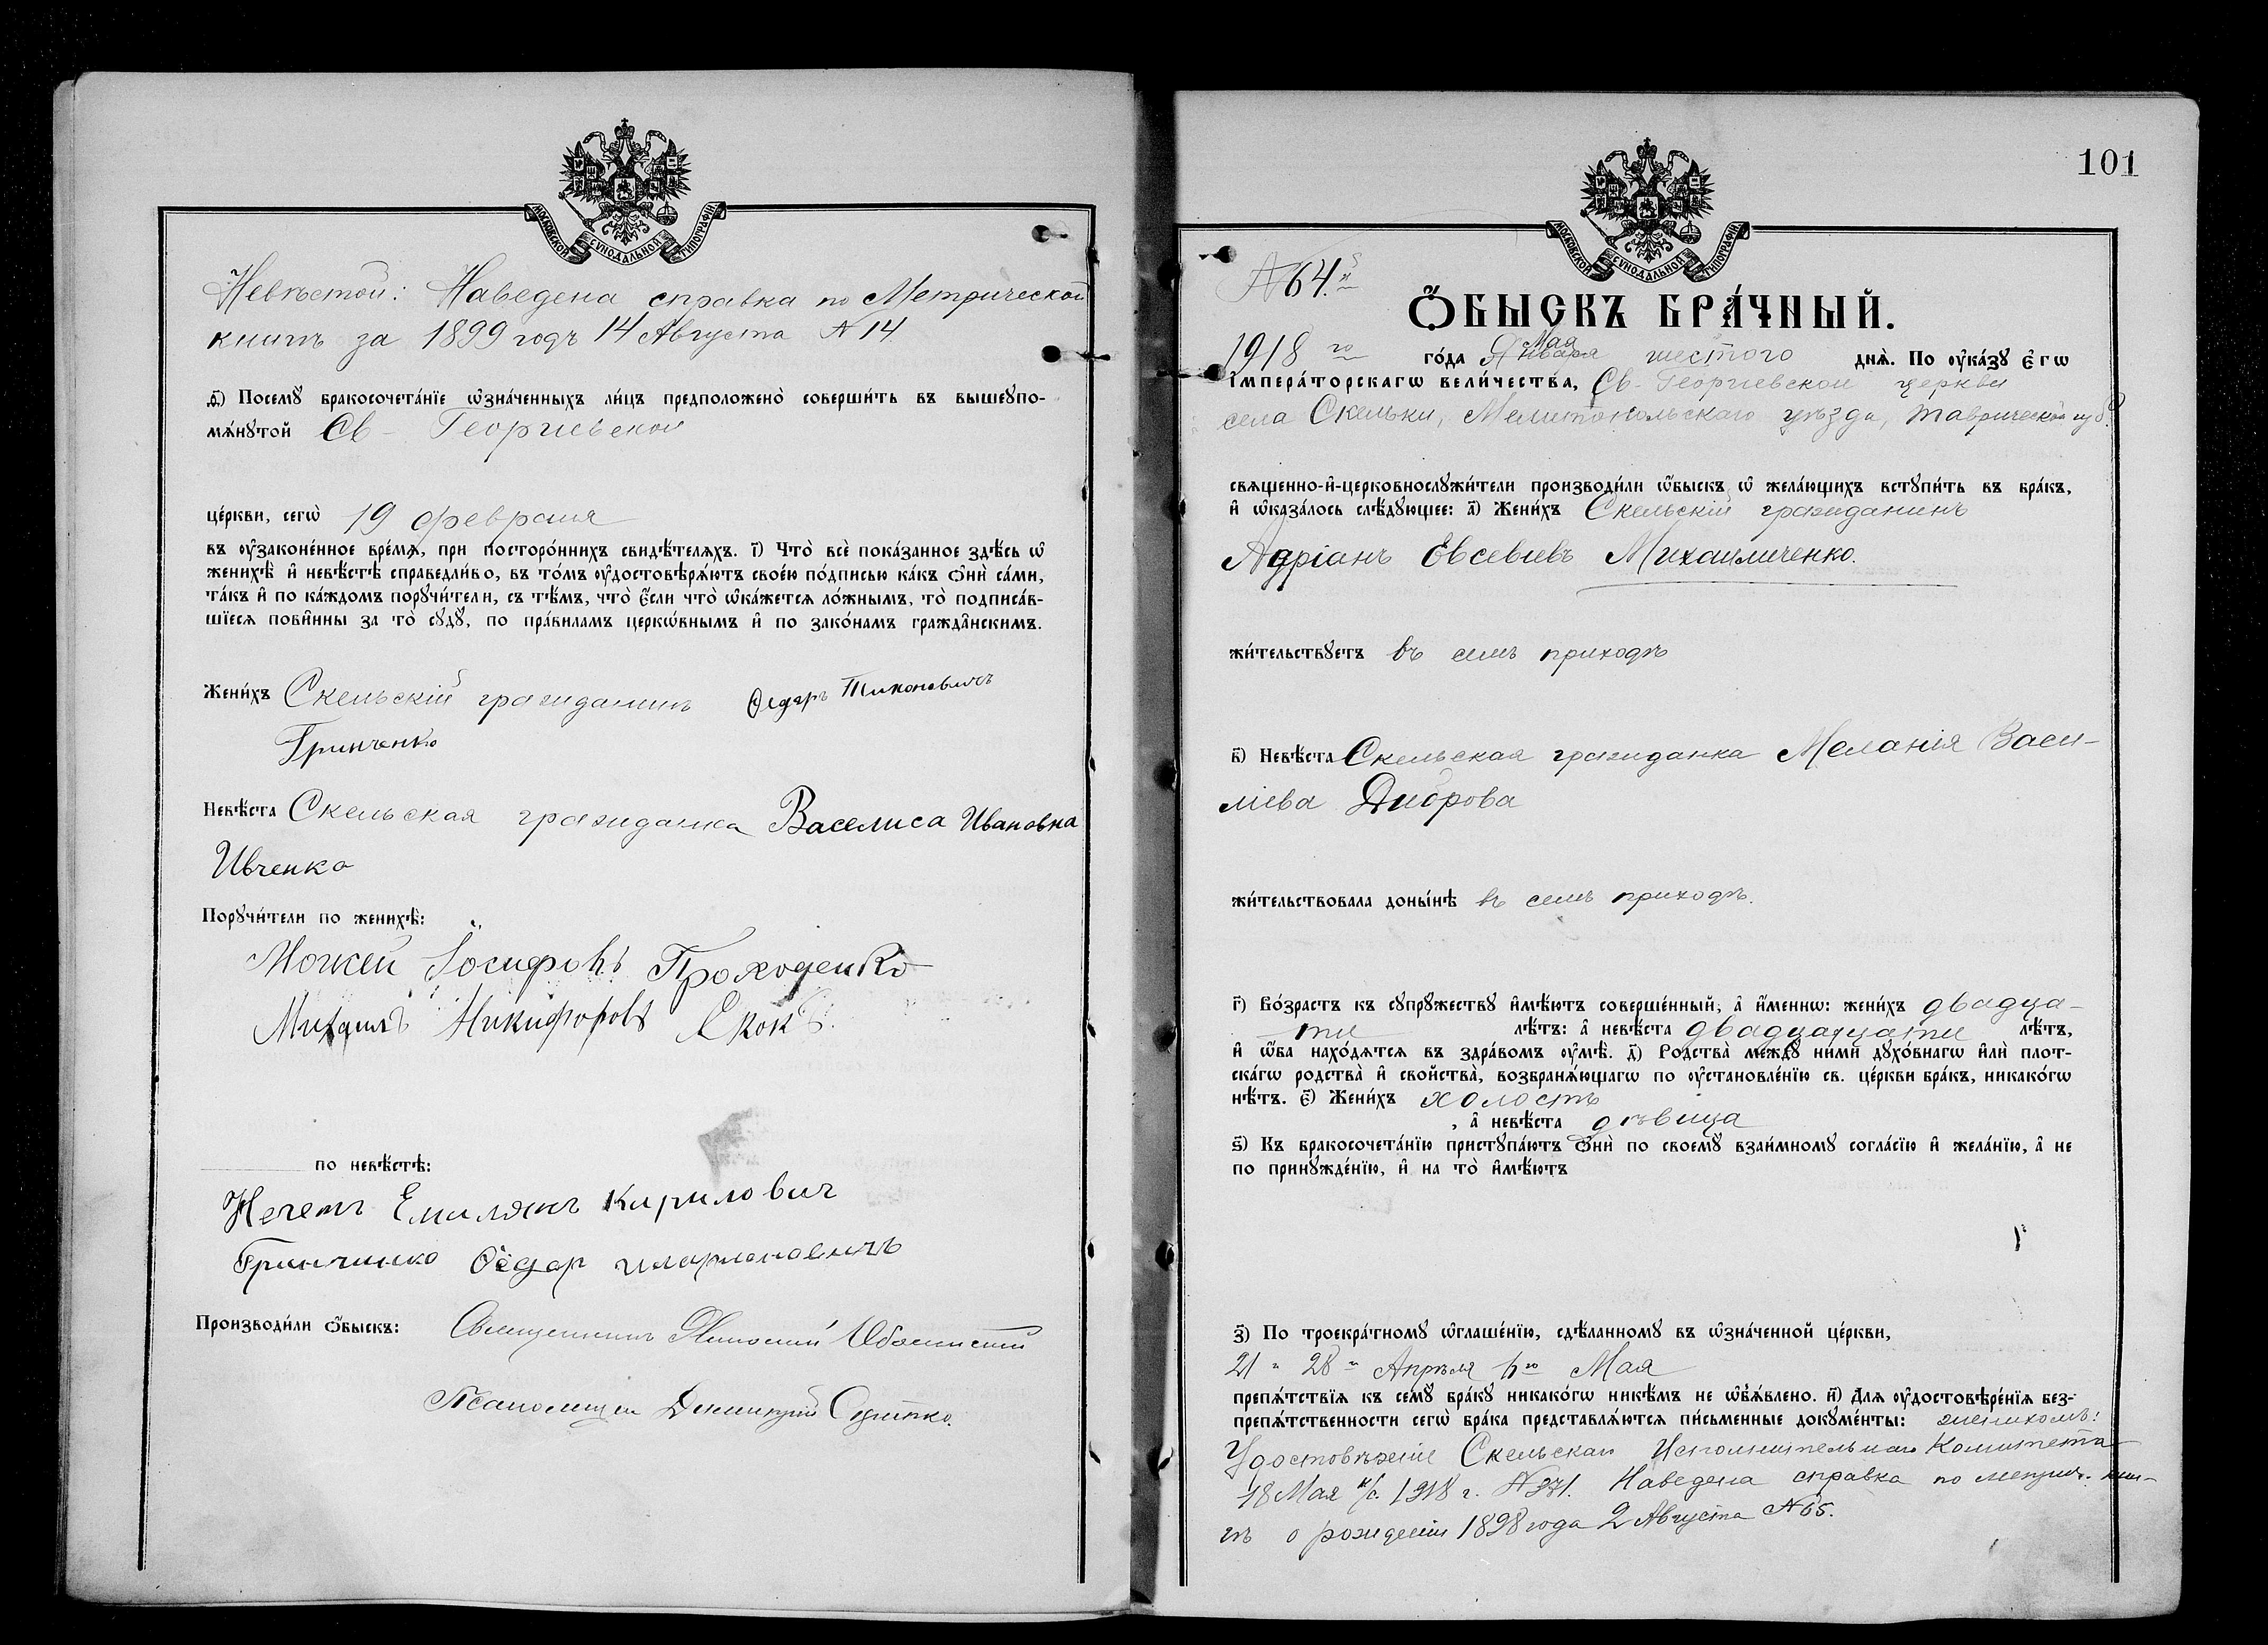 МОСКОВСКОЙ СѴНОДАЛЬНОЙ ТИПОГРАФІИ
Невѣстой: Наведена справка по Метрической
книгѣ за 1899 годъ 14 Августа № 14
д҃) Посемꙋ бракосочета́нїе ѡ҆зна́ченныхъ ли́цъ предположено̀ соверши́ть въ вышеꙋпо-
мѧ́нꙋтой Св- Георгіевской
це́ркви, сегѡ̀ 19 февраля
въ ᲂу҆законе́нное вре́мѧ, при посторо́ннихъ свидѣ́телѧхъ. і҃) Что̀ всѐ пока́занное здѣ́сь ѡ҆
женихѣ̀ и҆ невѣ́стѣ справедли́во, въ то́мъ ᲂу҆достовѣрѧ́ютъ свое́ю по́дписью ка́къ ѻ҆нѝ са́ми,
та́къ и҆ по ка́ждомъ порꙋчи́тели, съ тѣ́мъ, что̀ є҆́сли что̀ ѡ҆ка́жетсѧ ло́жнымъ, то̀ подписа́в-
шїесѧ пови́нны за то̀ сꙋдꙋ̀, по пра́виламъ церко́внымъ и҆ по зако́намъ гражда́нскимъ.
Жени́хъ Скельскій гражданинъ Ѳедаръ Тихоновичъ
Гринченко
Невѣ́ста Скельская гражданка Васелиса Ивановна
Ивченко
Порꙋчи́тели по женихѣ̀:
Мойсей Іосифовъ Проходенко
Михаилъ Никифоровъ Скокъ.
по невѣ́стѣ:
Нечетъ Емилянъ Кирилович
Гринчинко Ѳедар
Производи́ли ѻ҆́быскъ: Священникъ
Псаломщикъ Димитрій
101
МОСКОВСКОЙ СѴНОДАЛЬНОЙ ТИПОГРАФІИ
№ 64.й
Ѻ҆́БЫСКЪ БРА́ЧНЫЙ.
1918 го го́да Января Мая шестого днѧ̀. По ᲂу҆ка́зꙋ є҆гѡ̀
и҆мпера́торскагѡ вели́чества, Св- Георгіевской церкви
села Скельки, Мелитопольскаго уѣзда, Таврической губ.
свѧщенно-и҆-церковнослꙋжи́тели производи́ли ѻ҆́быскъ ѡ҆ жела́ющихъ встꙋпи́ть въ бра́къ,
и҆ ѡ҆каза́лось слѣ́дꙋющее: а҃) Жени́хъ Скельскій гражданинъ
Адріанъ Евсевіевъ Михаиличенко.
жи́тельствꙋетъ въ семъ приходѣ
в҃) Невѣ́ста Скельская гражданка Меланія Васи-
ліева Диброва
жи́тельствовала доны́нѣ въ семъ приходѣ.
г҃) Во́зрастъ къ сꙋпрꙋ́жествꙋ и҆мѣ́ютъ соверше́нный, а҆ и҆́меннѡ: жени́хъ двадца-
ти лѣ́тъ: а҆ невѣ́ста двадцатцати лѣ́тъ,
и҆ ѻ҆́ба нахо́дѧтсѧ въ здра́вомъ ᲂу҆мѣ̀. д҃) Родства̀ междꙋ̀ ни́ми дꙋхо́внагѡ и҆лѝ плот-
ска́гѡ родства̀ и҆ сво́йства, возбранѧ́ющагѡ по ᲂу҆становле́нїю св. це́ркви бра́къ, никако́гѡ
нѣ́тъ. є҃) Жени́хъ холостъ
, а҆ невѣ́ста дѣвица
ѕ҃) Къ бракосочета́нїю пристꙋпа́ютъ ѻ҆нѝ по своемꙋ̀ взаи́мномꙋ согла́сїю и҆ жела́нїю, а҆ не
по принꙋжде́нїю, и҆ на то̀ и҆мѣ́ютъ
з҃) По троекра́тномꙋ ѡ҆глаше́нїю, сдѣ́ланномꙋ въ ѡ҆зна́ченной це́ркви,
21 и 28 го Апрѣля 6 го Мая
препѧ́тствїѧ къ семꙋ̀ бра́кꙋ никако́гѡ никѣ́мъ не ѡ҆б̾ѧ́влено. и҃) Длѧ ᲂу҆достовѣре́нїѧ без-
препѧ́тственности сегѡ̀ бра́ка представлѧ́ютсѧ пи́сьменные докꙋме́нты: женихомъ:
Удостовѣреніе Скельскаго Исполнительнаго Комитета
18 Мая н/с. 1918 г. № 371. Наведена справка по метрич. кни-
гѣ о рожденіи 1898 года 2 Августа № 65.